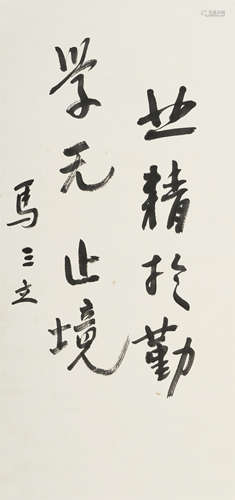 业精于勤
学无止境
马三立